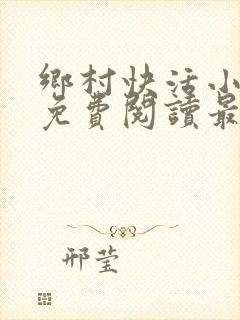 鄉村快活小
免費閱讀最
邢莹